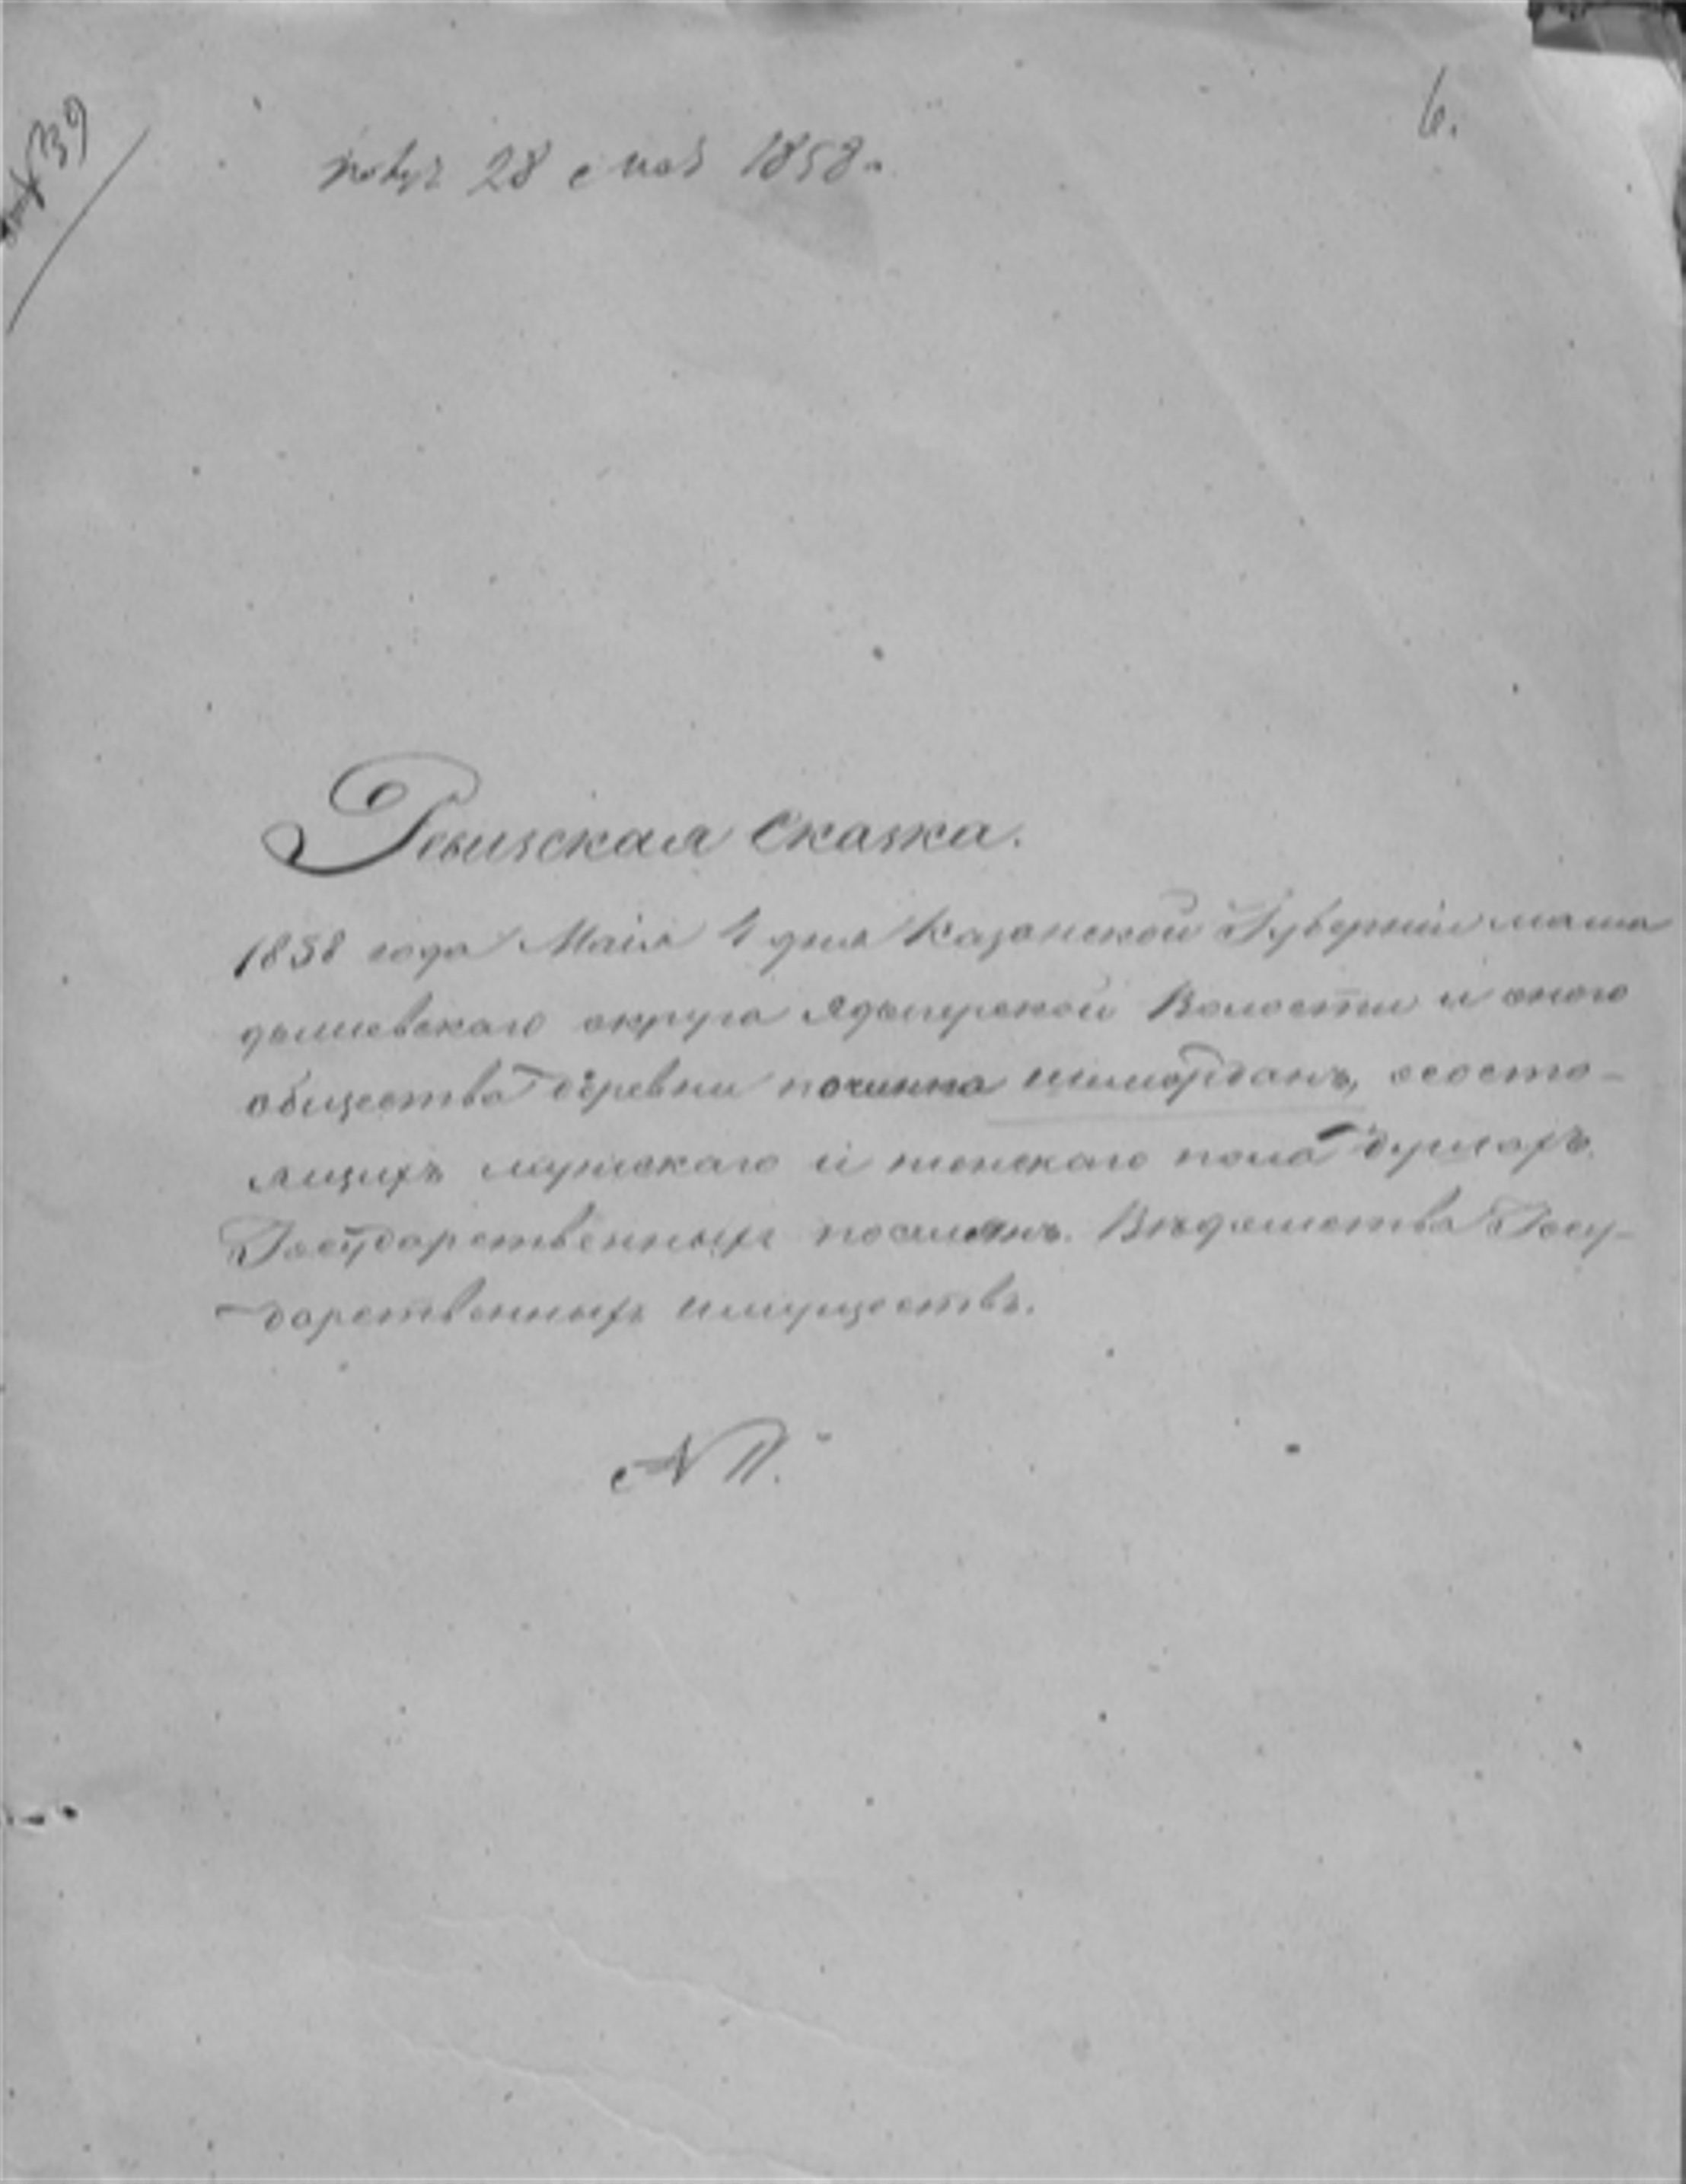 6.
39
28 Мая 1858.
Ревизская сказка.
1858 года Маія 1 дня Казанской Губерніи мама
дышевскаго округа Ядыгурской Волости и оного
общества деревни починка Шемордамъ, ососто-
ящихъ мужскаго и женскаго пола душахъ.
Государственныхъ поселянъ. Вѣдомства Госу-
дарственныхъ имуществъ.